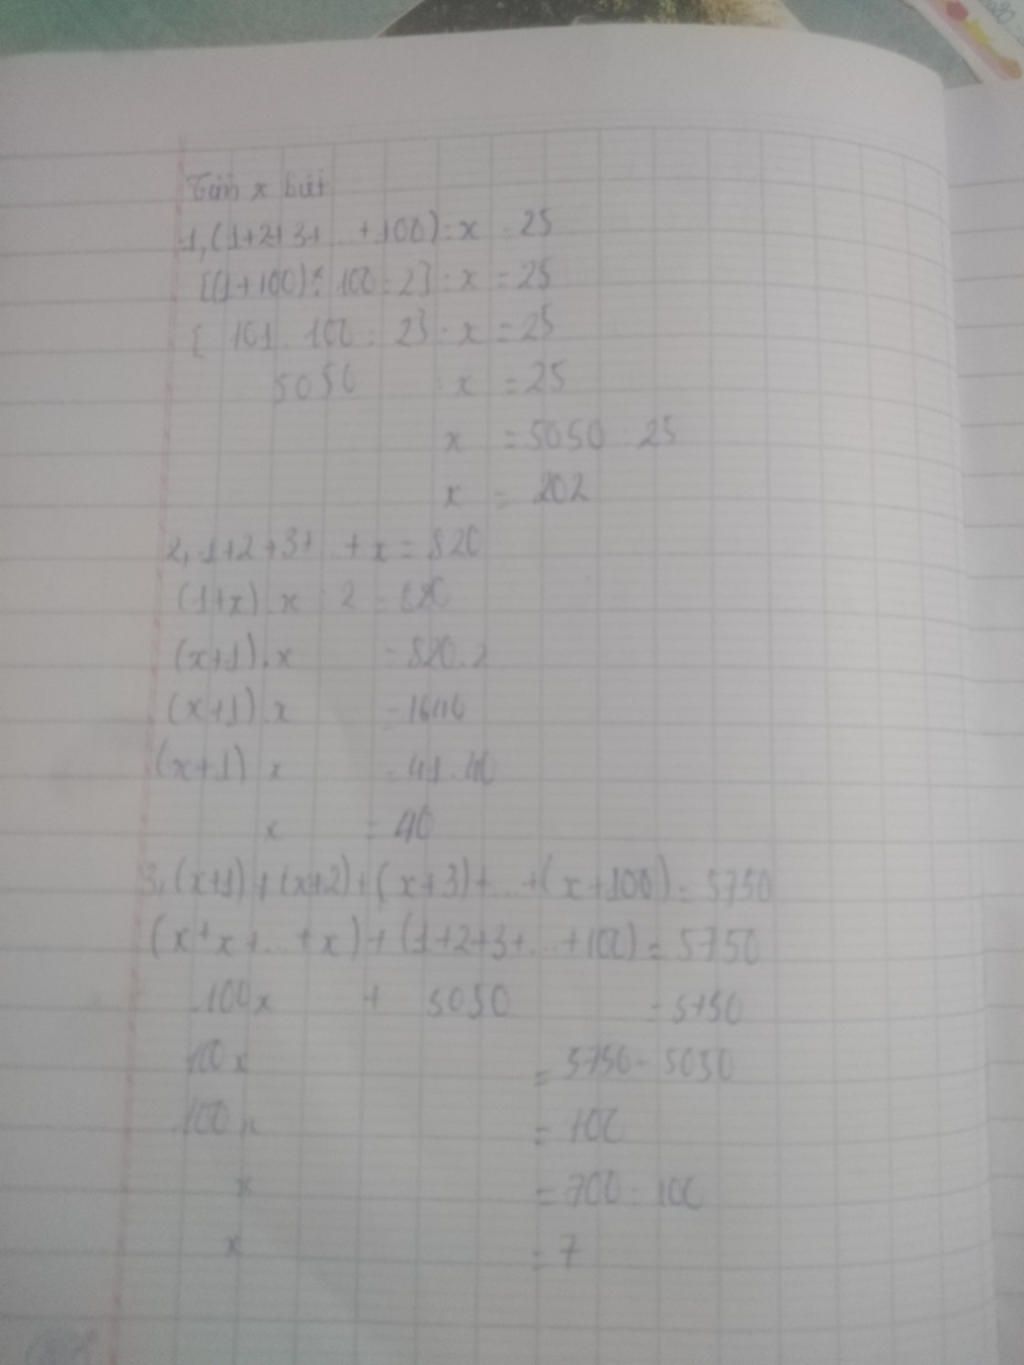 Tìm x biết
1, (1+2+3+...+100):x = 25
[(1+100).100:2]:x = 25
[101.100:2]:x = 25
5050 :x = 25
x = 5050:25
x = 202
2, 1+2+3+...+x = 820
(1+x).x:2 = 820
(x+1).x = 820.2
(x+1).x = 1640
(x+1).x = 41.40
x = 40
3, (x+1)+(x+2)+(x+3)+...+(x+100) = 5750
(x+x+...+x)+(1+2+3+...+100) = 5750
100x + 5050 = 5750
100x = 5750-5050
100x = 700
x = 700:100
x = 7